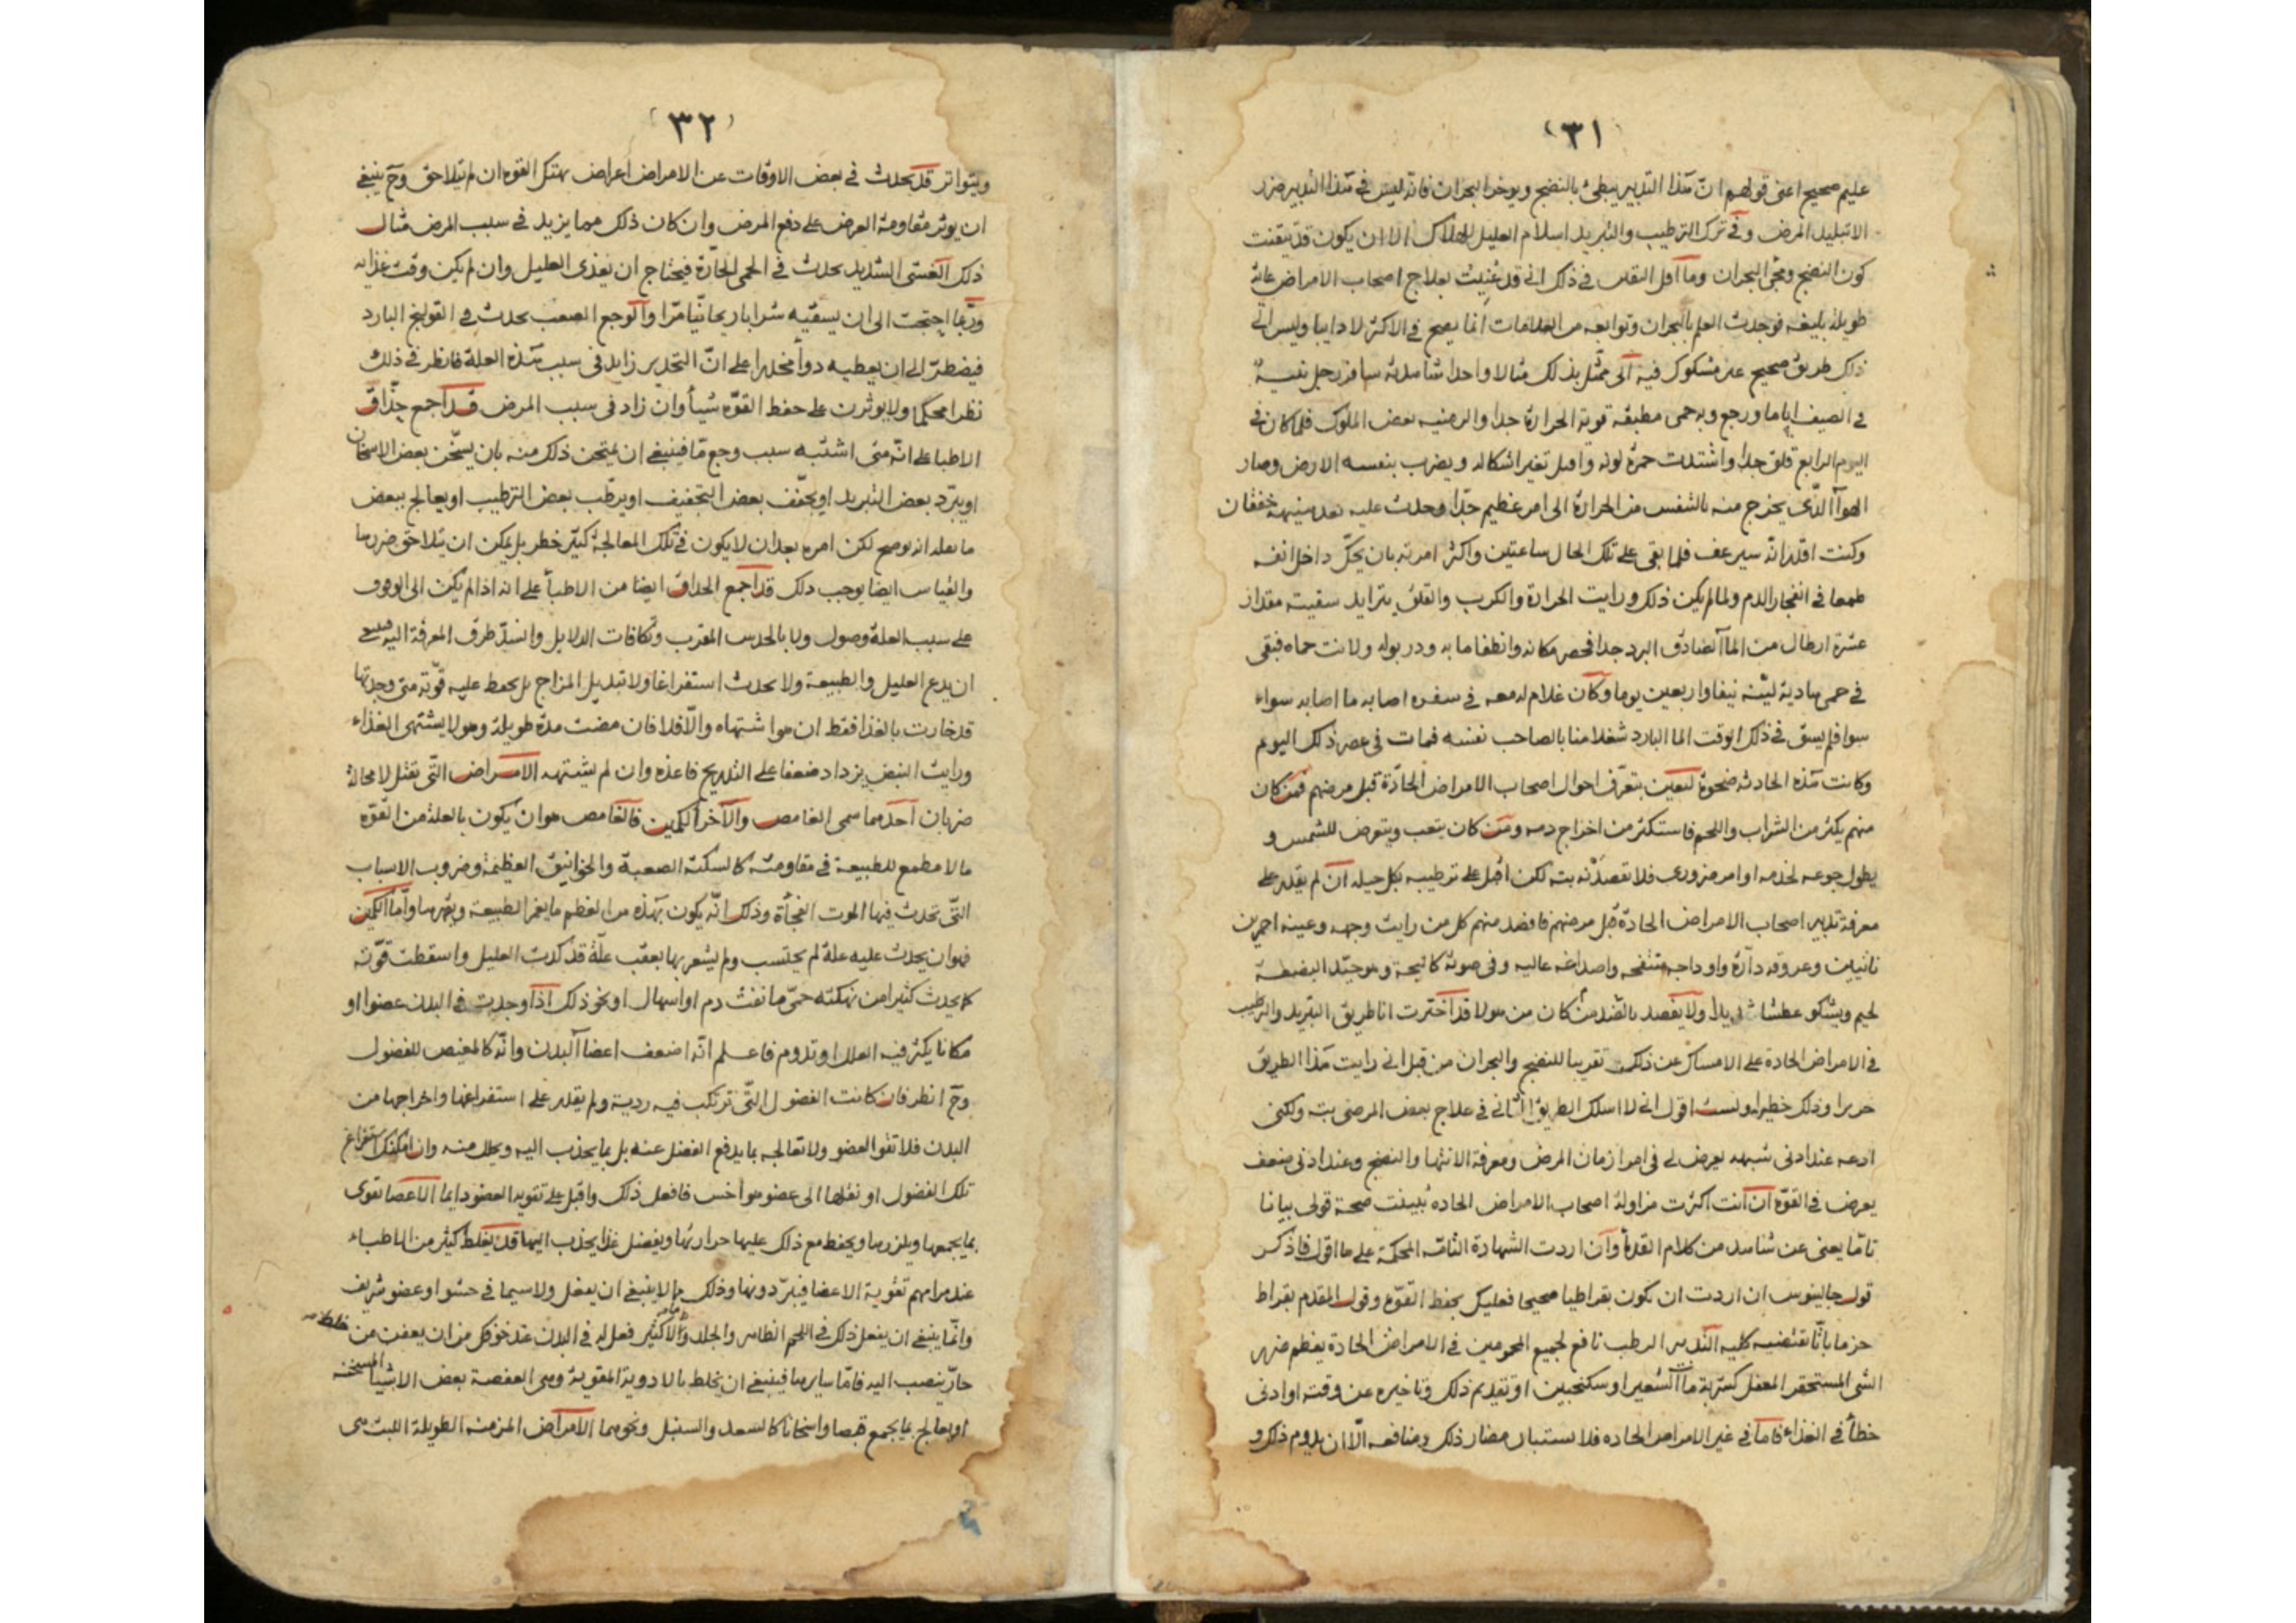 ٣١
عليم صحيح اعنى قولهم ان هذا التدبير يبطئ بالنضج ويوخر البحران فانه ليس فى هذا التدبير ضرر
الا تبليد المرض وفى ترك الترطيب والتبريد اسلام العليل للهلاك الا ان يكون قد تيقنت
كون النضج ومجئ البحران وما اقل التقدر فى ذلك انى قد عنيت بعلاج اصحاب الامراض عناية
طويلة بليغة فوجدت العلم بالبحران وتوابعه من العلامات انما يصح فى الاكثر لا دايما وليس الى
ذلك طريق صحيح غير مشكوك فيه الى ممثل بذلك مثالا واحدا شاهدته سافر رجل نفسه
فى الصيف اياما ورجع وبه حمى مطبقة قوية الحرارة جدا والزمنيه بعض الملوك فلما كان فى
اليوم الرابع قلق جدا واشتدت حمرة لونه واقبل تغير اشكاله ويضرب بنفسه الارض وصار
الهوآ الذى يخرج منه بالتنفس من الحرارة الى امر عظيم جدا وحدث عليه بعد خفقان
وكنت اقدر انه سيرعف فلما بقى على تلك الحال ساعتين واكثر امرته بان يحك داخل انفه
طمعا فى انفجار الدم ولما لم يكن ذلك ورايت الحرارة والكرب والقلق يتزايد سقيته مقدار
عشرة ارطال من المآ الصادق البرد جدا فخصر مكانه وانطفا ما به ودر بوله ولانت حماه فبقى
فى حمى هادية لينة نيفا واربعين يوما وكان غلام له معه فى سفره اصابه ما اصابه سواء
سوا فلم يسق فى ذلك الوقت المآ البارد شغلا منا بالصاحب نفسه فمات فى عصر ذلك اليوم
وكانت هذه الحادثة ضحوة لتعين بتعرف احوال اصحاب الامراض الحادة قبل مرضهم فمن كان
منهم يكثر من الشراب واللحم فاستكثر من اخراج دمه ومن كان يتعب ويتعرض للشمس و
يطول جوعه لخدمة او امر ضرورى فلا تفصدنه بته لكن اقبل على ترطيبه بكل حيلة ان لم يقدر على
معرفة تدبير اصحاب الامراض الحادة قبل مرضهم فافصد منهم كل من رايت وجهه وعينه احمرين
ناتيين وعروقه دارة واوداجه منتفخة واصداغه عالية وفى صوته كالبحة وهو جيد البضعة
لحيم ويشكو عطشا شديدا ولا يفصد بالضد من كان من هولا قد اخترت انا طريق التبريد والترطيب
فى الامراض الحادة على الامساك عن ذلك تقريبا للنضج والبحران من قبل انى رايت هذا الطريق
حريزا وذلك خطيرا ولست اقول انى لا اسلك الطريق الثانى فى علاج بعض المرضى بته ولكنى
ادعه عند ادنى شبهة يعرض لى فى امر ازمان المرض ومعرفة الانتها والنضج وعند ادنى ضعف
يعرض فى القوة ان انت اكثرت مزاولة اصحاب الامراض الحادة تبينت صحة قولى بيانا
تاما يغنى عن شاهد من كلام القدمآ وان اردت الشهادة التامة المحكمة على ما اقول فاذكر
قول جالينوس ان اردت ان تكون بقراطيا صحيحا فعليك بحفظ القوة وقول المقدم بقراط
حزما باتا بقضية كلية التدبير الرطب نافع لجميع المحمومين فى الامراض الحادة يعظم ضرر
الشى المستحقر المغفل كشربة مآ الشعير او سكنجبين او تقديم ذلك وتاخيره عن وقته او ادنى
خطأ فى الغذاء فاما فى غير الامراض الحادة فلا يستبان مضار ذلك ومنافعه الا ان يدوم ذلك و
٣٢
ويتواتر قد يحدث فى بعض الاوقات عن الامراض اعراض تهتك القوة ان لم يتلاحق وح ينبغى
ان يوثر مقاومة العرض على دفع المرض وان كان ذلك مما يزيد فى سبب المرض مثال
ذلك الغشى الشديد يحدث فى الحمى الحارة فيحتاج ان يغذى العليل وان لم يكن وقت غذايه
وربما احتجت الى ان يسقيه شرابا ريحانيا مرا والوجع الصعب يحدث فى القولنج البارد
فيضطر الى ان يعطيه دوأ مخدرا على ان التخدير زايد فى سبب هذه العلة فانظر فى ذلك
نظرا محكما ولا يوثرن على حفظ القوة شيأ وان زاد فى سبب المرض قد اجمع حذاق
الاطبا على انه متى اشتبه سبب وجع ما فينبغى ان يمتحن ذلك منه بان يسخن بعض الاسخان
او يبرد بعض التبريد او يجفف بعض التجفيف او يرطب بعض الترطيب او يعالج ببعض
ما يعلم انه يوضح لكن امره بعد ان لا يكون فى تلك المعالجة كثير خطر بل يمكن ان يتلاحق ضررها
والقياس ايضا يوجب ذلك قد اجمع الحذاق ايضا من الاطبآ على انه اذا لم يكن الى الوقوف
على سبب العلة وصول ولا بالحدس المقرب وتكافات الدلايل وانسد طرق المعرفة اليه فينبغى
ان يدع العليل والطبيعة ولا يحدث استفراغا ولا تبديل المزاج بل يحفظ عليه قوته متى وجدتها
قد خارت بالغذا فقط ان هو اشتهاه والا فلا فان مضت مدة طويلة وهو لا يشتهى الغذاء
ورايت النبض يزداد ضعفا على التدريج فاغذه وان لم يشتهه الامراض التى تقتل لا محالة
ضربان احدهما سمى الغامص والآخر الكمين فالغامص هو ان يكون بالعلة من القوة
مالا مطمع للطبيعة فى مقاومته كالسكتة الصعبة والخوانيق العظيمة وضروب الاسباب
التى تحدث فيها الموت الفجأة وذلك انه يكون بهذه من العظم ما يغمر الطبيعة ويقهرها واما الكمين
فهو ان يحدث عليه علة لم يحتسب ولم يشعر بها بعقب علة قد كدت العليل واسقطت قوته
كما يحدث كثيرا من نهكته حمى ما نفث دم او اسهال او نحو ذلك اذا وجدت فى البدن عضوا او
مكانا يكثر فيه العلل او تدوم فاعلم انه اضعف اعضآ البدن وانه كالمغيض للفضول
وح انظر فان كانت الفضول التى تركب فيه ردية ولم يقدر على استفراغها واخراجها من
البدن فلا تقو العضو ولا تعالجه بما يدفع الفضل عنه بل بما يجذب اليه ويحلل منه وان امكنك استفراغ
تلك الفضول او نقلها الى عضو هو اخس فافعل ذلك واقبل على تقوية العضو دايما الاعضا تقوى
بما يجمعها ويلززها ويحفظ مع ذلك عليها حرارتها وبفضل غذا يجذب اليها قد يغلط كثير من الاطباء
عند مرامهم تقوية الاعضا فيبردونها وذلك ما لا ينبغى ان يفعل ولا سيما فى حشو او عضو شريف
وانما ينبغى ان يفعل ذلك فى اللحم الظاهر والجلد والاكثر فعل له فى البدن عند خوفك من ان يعفن من خلط
حار ينصب اليه فاما سايرها فينبغى ان يخلط بالادوية المقوية وهى العفصة بعض الاشيا المسخنة
او يعالج بما يجمع قبضا واسخانا كالسعد والسنبل ونحوهما الامراض المزمنة الطويلة اللبث هى